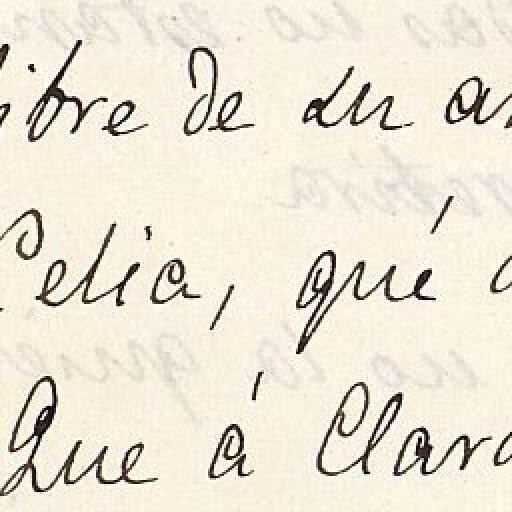 libre de su
Celia, qué
Que á Clara